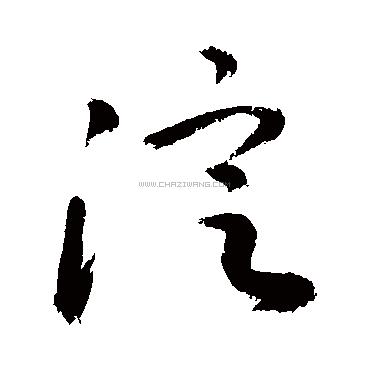 淀
WWW.CHAZIWANG.COM